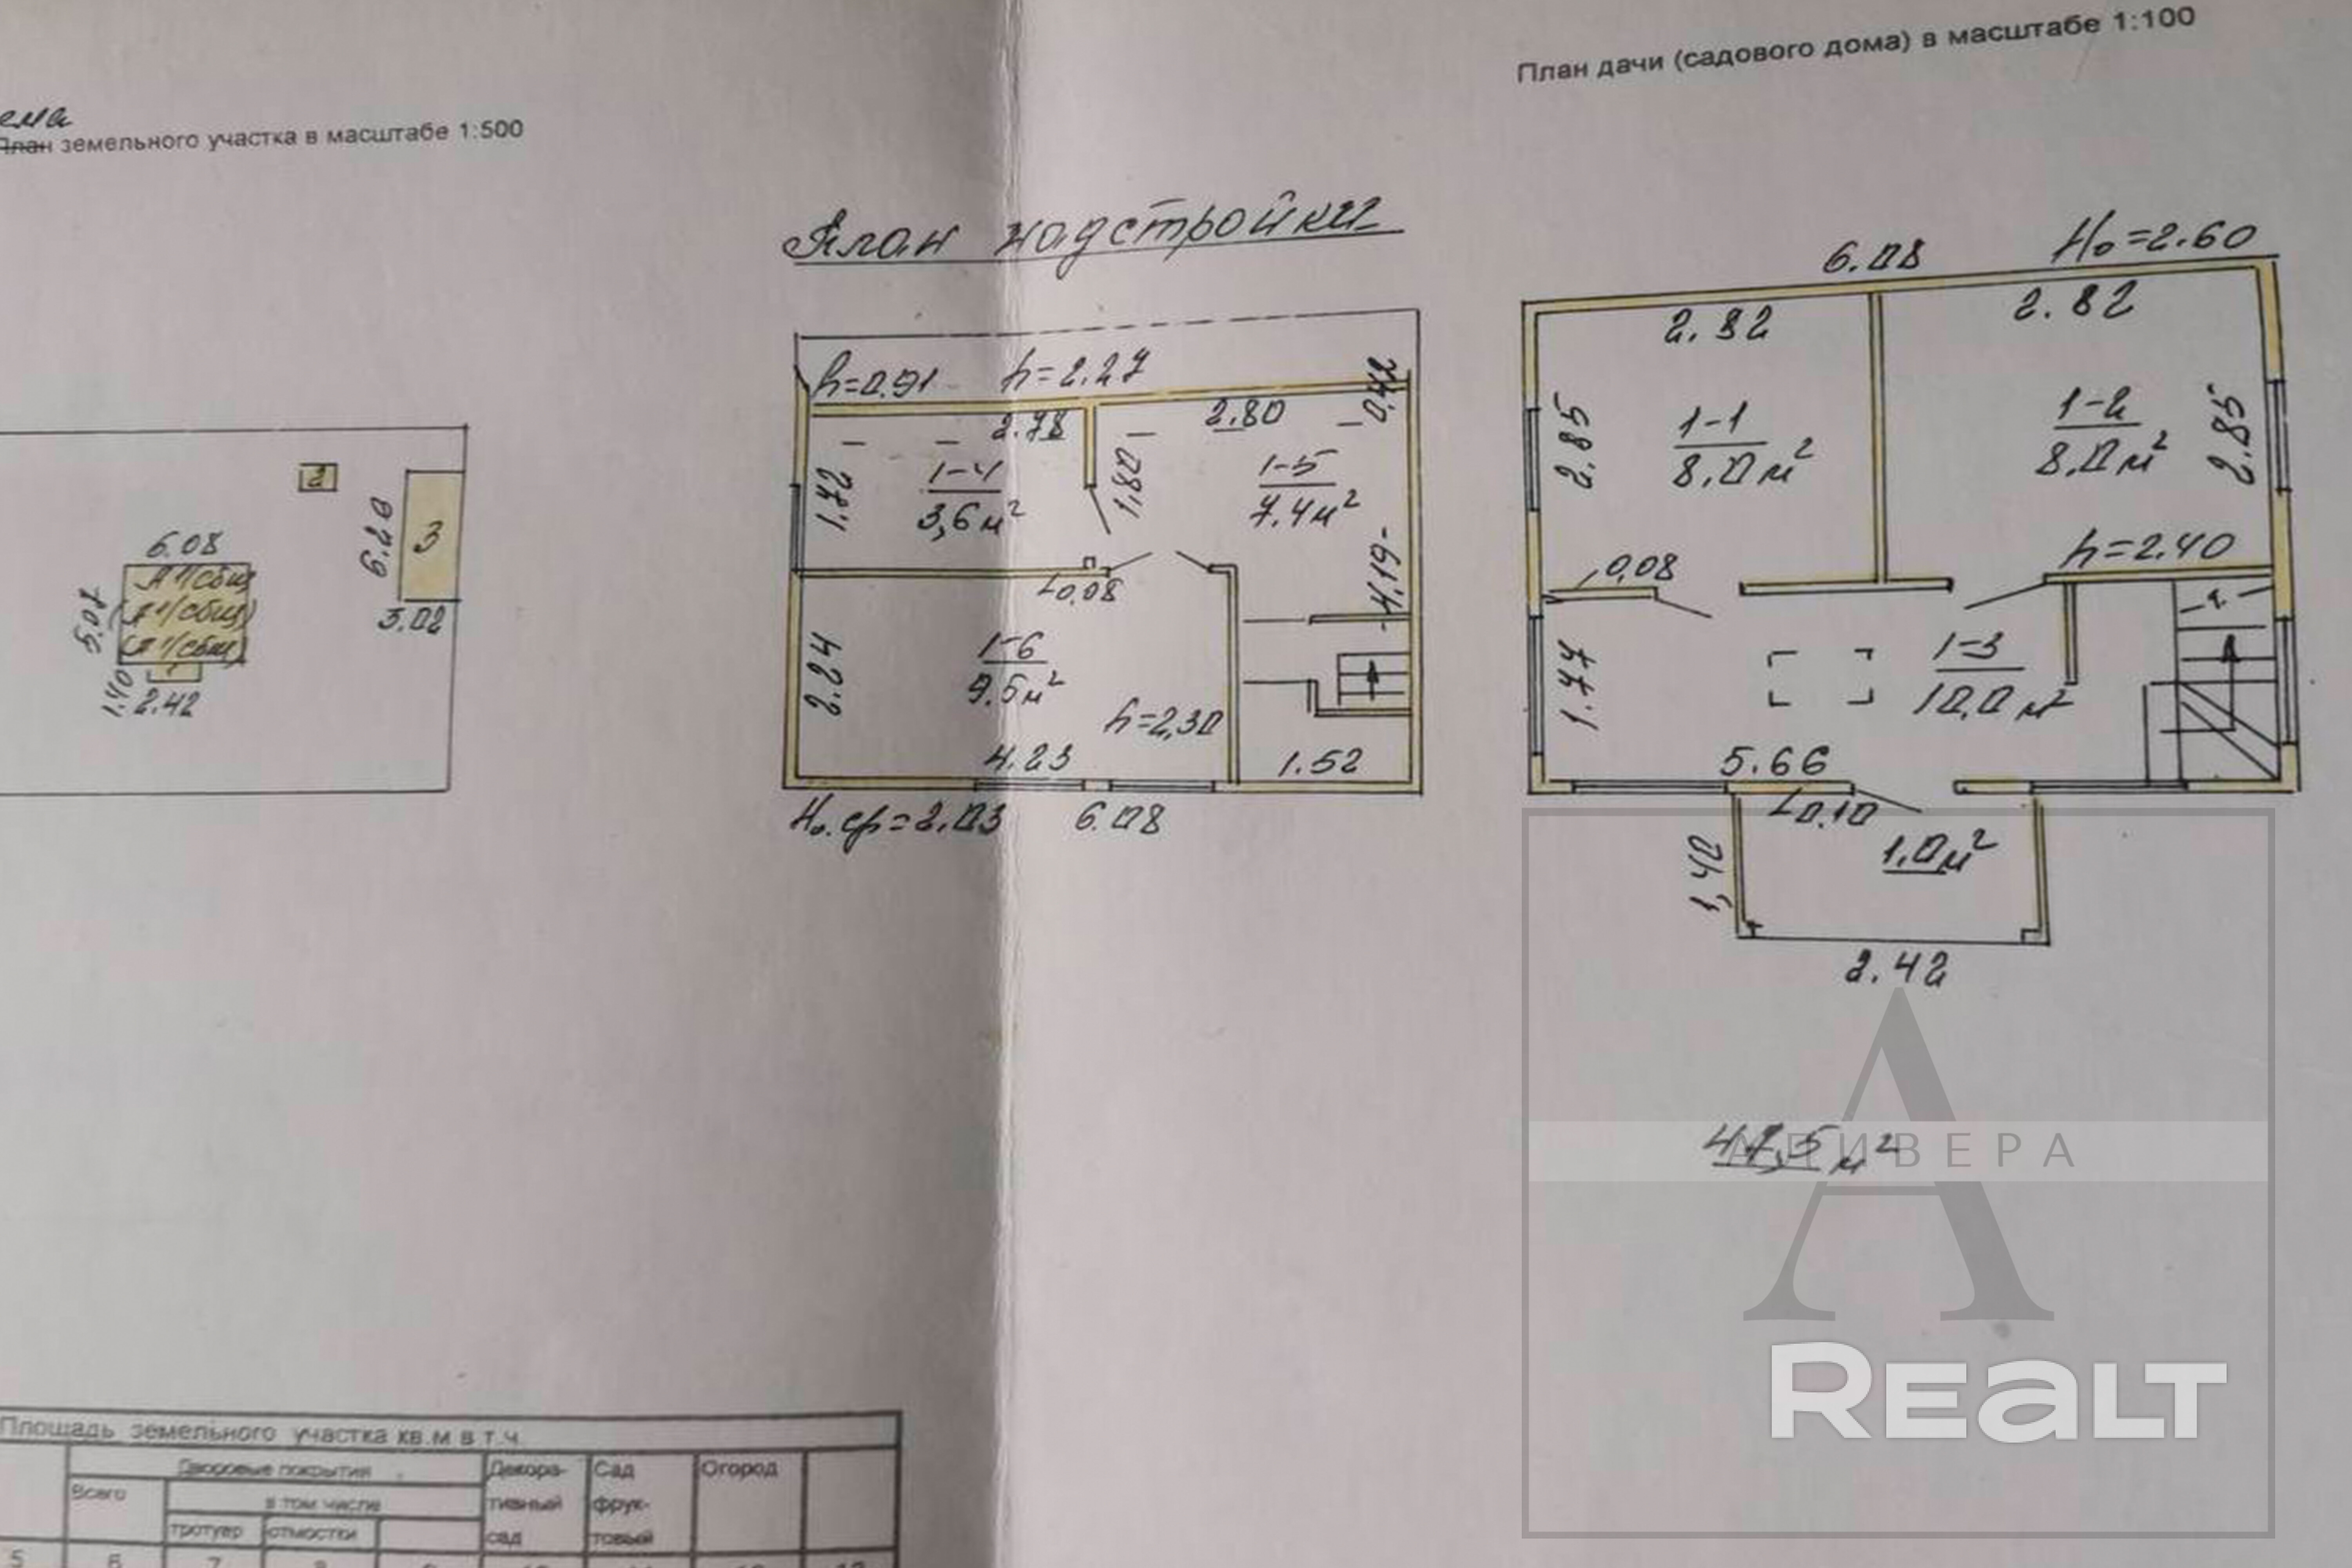 План дачи (садового дома) в масштабе 1:100
План земельного участка в масштабе 1:500
План надстройки
6.08
5.07
1.40
2.42
2
3
6.20
3.02
h=0.91
h=2.27
0,42
2.78
2.80
1.72
1-4
3,6 м²
1,80
1-5
7.4 м²
4,19
0,08
2.24
1-6
9.5 м²
h=2,30
4.23
1.52
Но.ср=2.03
6.08
6.08
Но=2.60
2.82
2.82
2.85
1-1
8,0 м²
1-2
8,0 м²
2.85
0,08
h=2.40
1.77
1-3
10,0 м²
5.66
0,10
1,0 м²
1,40
2.42
47,5 м²
АЛИВЕРА
REALT
Площадь земельного участка кв.м в т.ч.
Дворовые покрытия
Декора-
тивный
сад
Сад
фрук-
товый
Огород
Всего
в том числе
тротуар
отмостки
5 6 7